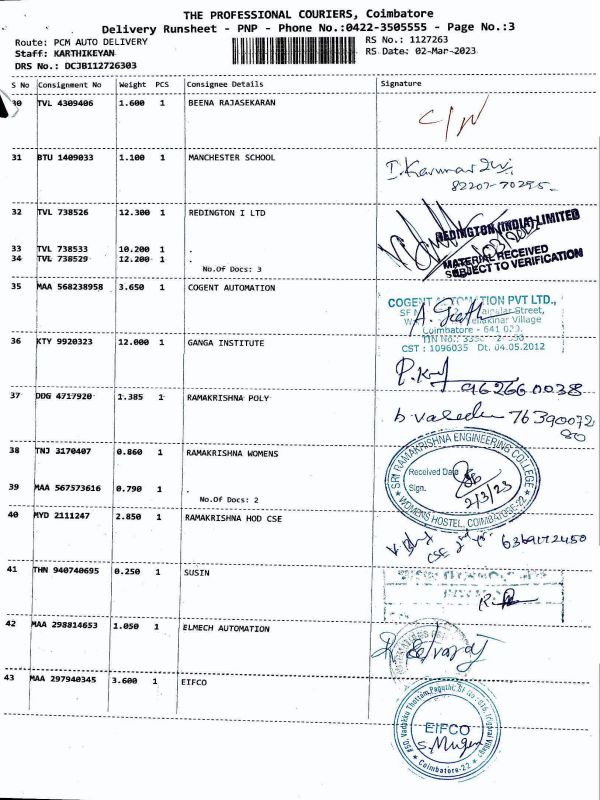 THE PROFESSIONAL COURIERS, Coimbatore
Delivery Runsheet - PNP - Phone No.:0422-3505555 - Page No.:3
Route: PCM AUTO DELIVERY
RS No.: 1127263
Staff: KARTHIKEYAN
RS Date: 02-Mar-2023
DRS No.: DCJB112726303
S No Consignment No Weight PCS Consignee Details Signature
30 TVL 4309406 1.600 1 BEENA RAJASEKARAN
31 BTU 1409033 1.100 1 MANCHESTER SCHOOL
82207-70295
32 TVL 738526 12.300 1 REDINGTON I LTD
REDINGTON (INDIA) LIMITED
33 TVL 738533 10.200 1 .
MATERIAL RECEIVED
34 TVL 738529 12.200 1 .
SUBJECT TO VERIFICATION
No.Of Docs: 3
35 MAA 568238958 3.650 1 COGENT AUTOMATION
COGENT TION PVT LTD.,
Street,
Village
Coimbatore - 641 029.
CST : 1096035 Dt. 04.05.2012
36 KTY 9920323 12.000 1 GANGA INSTITUTE
9626600038
37 DDG 4717920 1.385 1 RAMAKRISHNA POLY
76390072
80
38 TNJ 3170407 0.860 1 RAMAKRISHNA WOMENS
SRI RAMAKRISHNA ENGINEERING COLLEGE
Received Date
Sign.
2/3/23
WOMENS HOSTEL, COIMBATORE-22
39 MAA 567573616 0.790 1 .
No.Of Docs: 2
40 MYD 2111247 2.850 1 RAMAKRISHNA HOD CSE
CSE
41 THN 940740695 0.250 1 SUSIN
42 MAA 298814653 1.050 1 ELMECH AUTOMATION
43 MAA 297940345 3.600 1 EIFCO
EIFCO
Coimbatore-22